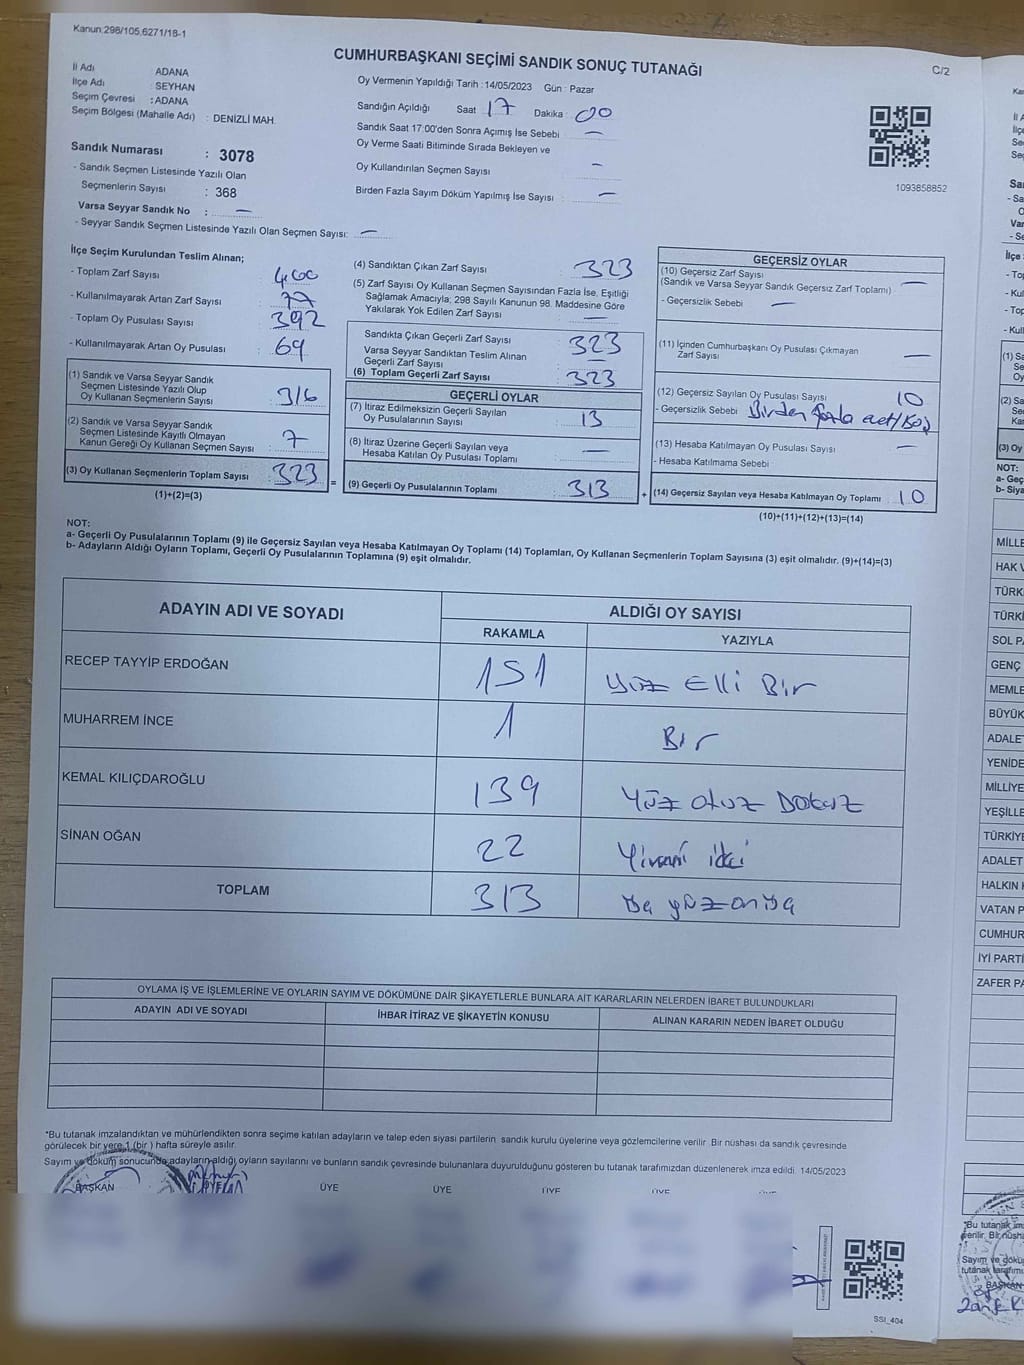 Kanun:298/105,6271/18-1
CUMHURBAŞKANI SEÇİMİ SANDIK SONUÇ TUTANAĞI
C/2
İl Adı ADANA
İlçe Adı : SEYHAN
Seçim Çevresi : ADANA
Seçim Bölgesi (Mahalle Adı) : DENİZLİ MAH.
Oy Vermenin Yapıldığı Tarih :14/05/2023 Gün : Pazar
Sandığın Açıldığı Saat 17 Dakika : 00
Sandık Saat 17:00'den Sonra Açımış İse Sebebi —
Oy Verme Saati Bitiminde Sırada Bekleyen ve
Oy Kullandırılan Seçmen Sayısı —
Birden Fazla Sayım Döküm Yapılmış İse Sayısı : —
1093858852
Sandık Numarası : 3078
- Sandık Seçmen Listesinde Yazılı Olan
Seçmenlerin Sayısı : 368
Varsa Seyyar Sandık No : —
- Seyyar Sandık Seçmen Listesinde Yazılı Olan Seçmen Sayısı: —
İlçe Seçim Kurulundan Teslim Alınan;
- Toplam Zarf Sayısı 400
- Kullanılmayarak Artan Zarf Sayısı : 77
- Toplam Oy Pusulası Sayısı 392
- Kullanılmayarak Artan Oy Pusulası : 69
(1) Sandık ve Varsa Seyyar Sandık
Seçmen Listesinde Yazılı Olup
Oy Kullanan Seçmenlerin Sayısı : 316
(2) Sandık ve Varsa Seyyar Sandık
Seçmen Listesinde Kayıtlı Olmayan
Kanun Gereği Oy Kullanan Seçmen Sayısı : 7
(3) Oy Kullanan Seçmenlerin Toplam Sayısı : 323
(1)+(2)=(3)
(4) Sandıktan Çıkan Zarf Sayısı : 323
(5) Zarf Sayısı Oy Kullanan Seçmen Sayısından Fazla İse, Eşitliği
Sağlamak Amacıyla; 298 Sayılı Kanunun 98. Maddesine Göre
Yakılarak Yok Edilen Zarf Sayısı : —
Sandıkta Çıkan Geçerli Zarf Sayısı : 323
Varsa Seyyar Sandıktan Teslim Alınan
Geçerli Zarf Sayısı : —
(6) Toplam Geçerli Zarf Sayısı : 323
GEÇERLİ OYLAR
(7) İtiraz Edilmeksizin Geçerli Sayılan
Oy Pusulalarının Sayısı : 13
(8) İtiraz Üzerine Geçerli Sayılan veya
Hesaba Katılan Oy Pusulası Toplamı : —
= (9) Geçerli Oy Pusulalarının Toplamı : 313 +
GEÇERSİZ OYLAR
(10) Geçersiz Zarf Sayısı
(Sandık ve Varsa Seyyar Sandık Geçersiz Zarf Toplamı) : —
- Geçersizlik Sebebi : —
(11) İçinden Cumhurbaşkanı Oy Pusulası Çıkmayan
Zarf Sayısı : —
(12) Geçersiz Sayılan Oy Pusulası Sayısı : 10
- Geçersizlik Sebebi : Birden fazla
(13) Hesaba Katılmayan Oy Pusulası Sayısı : —
- Hesaba Katılmama Sebebi :
(14) Geçersiz Sayılan veya Hesaba Katılmayan Oy Toplamı : 10
(10)+(11)+(12)+(13)=(14)
NOT:
a- Geçerli Oy Pusulalarının Toplamı (9) ile Geçersiz Sayılan veya Hesaba Katılmayan Oy Toplamı (14) Toplamları, Oy Kullanan Seçmenlerin Toplam Sayısına (3) eşit olmalıdır. (9)+(14)=(3)
b- Adayların Aldığı Oyların Toplamı, Geçerli Oy Pusulalarının Toplamına (9) eşit olmalıdır.
ADAYIN ADI VE SOYADI
ALDIĞI OY SAYISI
RAKAMLA YAZIYLA
RECEP TAYYİP ERDOĞAN 151 yüz Elli Bir
MUHARREM İNCE 1 Bir
KEMAL KILIÇDAROĞLU 139 Yüz otuz Dokuz
SİNAN OĞAN 22 Yirmi iki
TOPLAM 313
OYLAMA İŞ VE İŞLEMLERİNE VE OYLARIN SAYIM VE DÖKÜMÜNE DAİR ŞİKAYETLERLE BUNLARA AİT KARARLARIN NELERDEN İBARET BULUNDUKLARI
ADAYIN ADI VE SOYADI İHBAR İTİRAZ VE ŞİKAYETİN KONUSU ALINAN KARARIN NEDEN İBARET OLDUĞU
*Bu tutanak imzalandıktan ve mühürlendikten sonra seçime katılan adayların ve talep eden siyasi partilerin sandık kurulu üyelerine veya gözlemcilerine verilir. Bir nüshası da sandık çevresinde
görülecek bir yere 1 (bir ) hafta süreyle asılır.
Sayım ve döküm sonucunda adayların aldığı oyların sayılarını ve bunların sandık çevresinde bulunanlara duyurulduğunu gösteren bu tutanak tarafımızdan düzenlenerek imza edildi. 14/05/2023
BAŞKAN ÜYE ÜYE ÜYE ÜYE ÜYE ÜYE
SSI_404
NOT:
MİLLE
HAK V
TÜRKİ
TÜRKİ
SOL PA
GENÇ
MEMLE
BÜYÜK
ADALET
YENİDE
MİLLİYE
YEŞİLLE
TÜRKİYE
ADALET
HALKIN K
VATAN P
CUMHUR
İYİ PARTİ
ZAFER PA
*Bu tutanak im
verilir. Bir nüsha
Sayım ve dökü
tutanak tarafımı
BAŞKAN